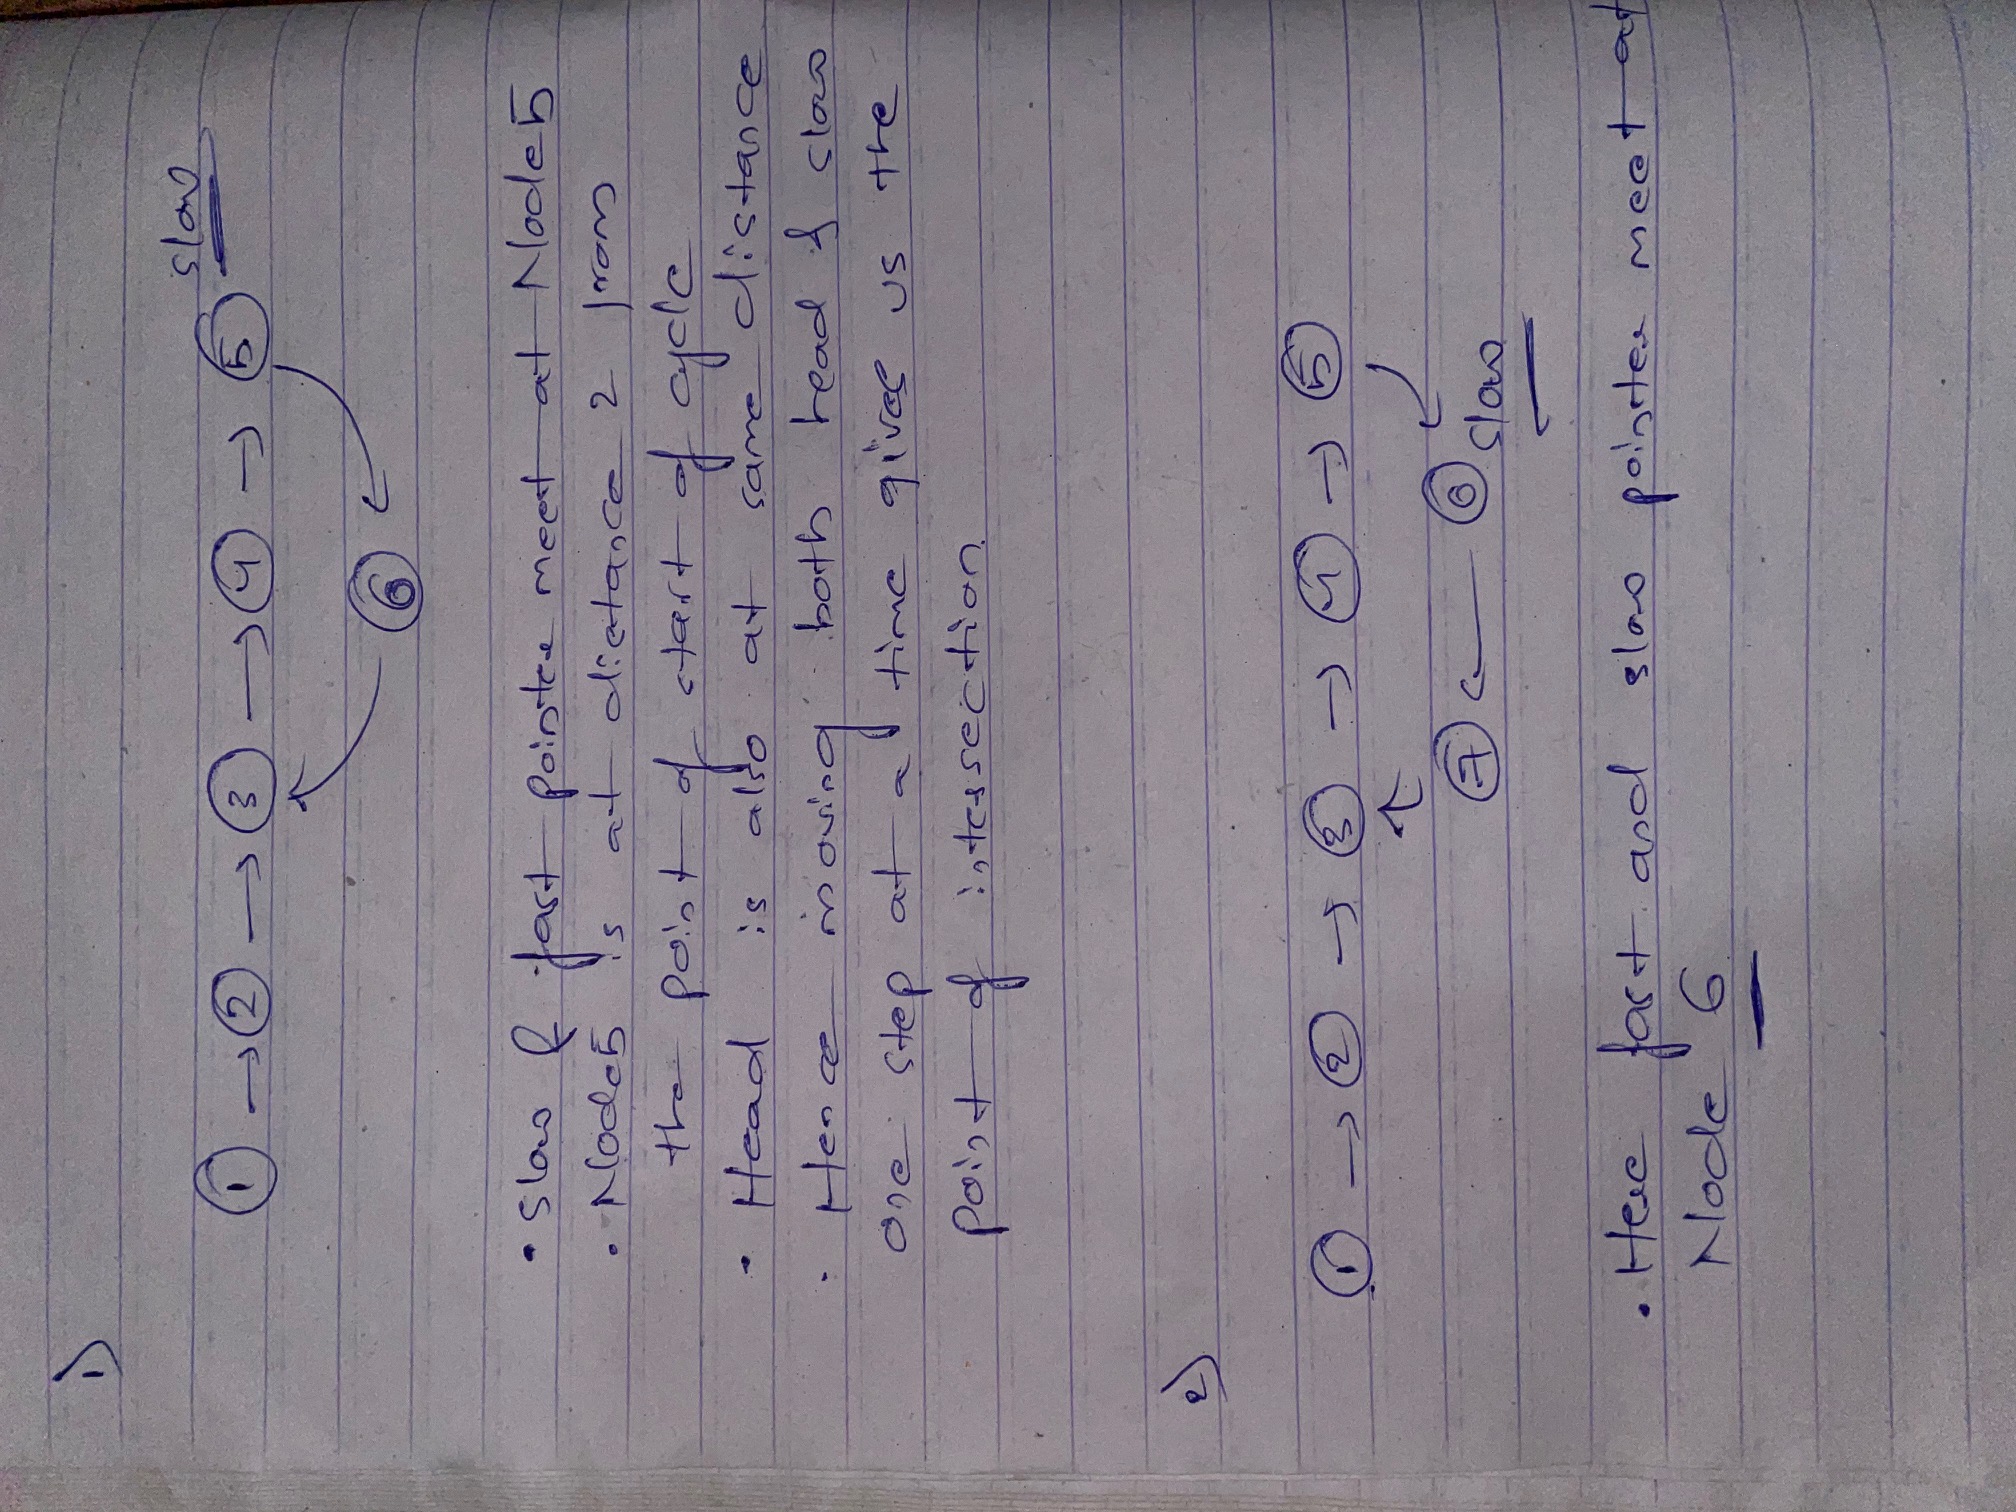 1)
slow
1 → 2 → 3 → 4 → 5
6
• Slow & fast pointer meet at Node 5
• Node 5 is at distance 2 from
the point of start of cycle
• Head is also at same distance
• Hence moving both head & slow
one step at a time gives us the
point of intersection.
2)
1 → 2 → 3 → 4 → 5
7 ← 6 slow
• Here fast and slow pointer meet at
Node 6